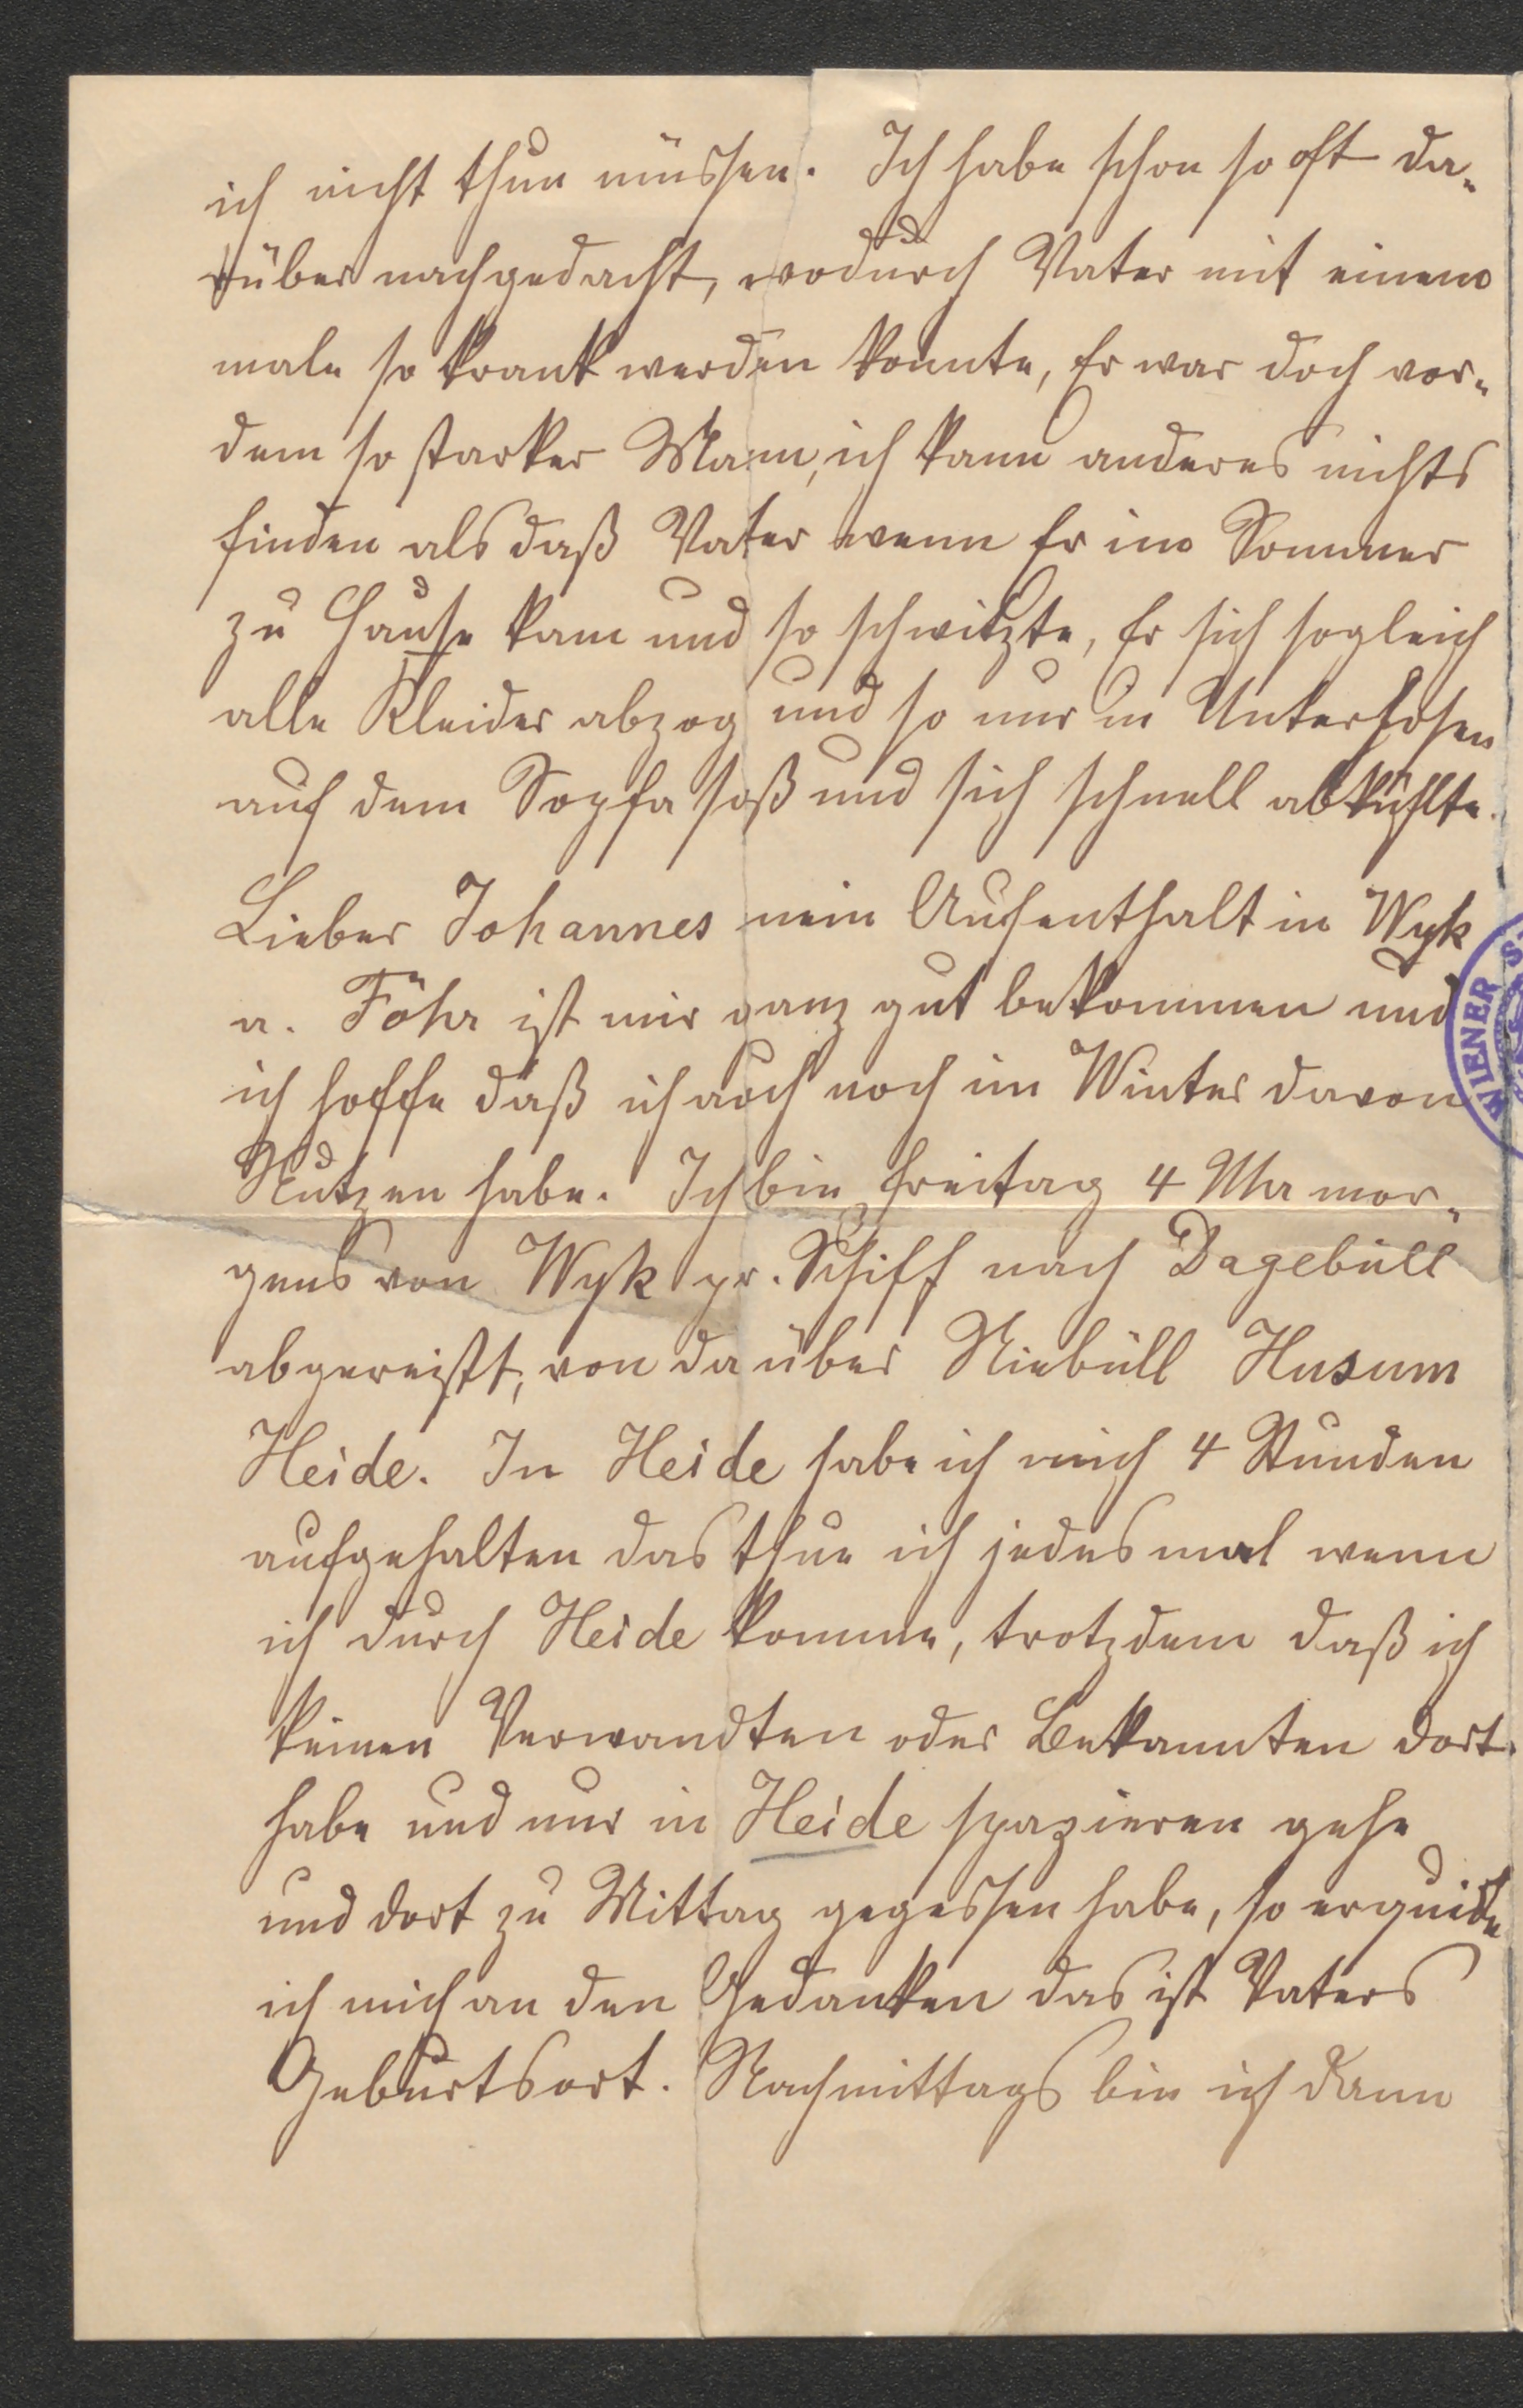 ich nicht thun müssen. Ich habe schon so oft da-
rüber nachgedacht, wodurch Vater mit einem
male so krank werden konnte, Er war doch vor-
dem so starker Mann, ich kann anderes nichts
finden als daß Vater wenn Er im Sommer
zu Hause kam und so schwitzte, Er sich sogleich
alle Kleider abzog und so nur in Unterhosen
auf dem Sopfa saß und sich schnell abkühlte.
Lieber Johannes mein Aufenthalt in Wyk
a. Föhr ist mir ganz gut bekommen und
ich hoffe daß ich auch noch im Winter davon
Nutzen habe. Ich bin Freitag 4 Uhr mor-
gens von Wyk pr. Schiff nach Dagebüll
abgereißt, von da über Niebüll Husum
Heide. In Heide habe ich mich 4 Stunden
aufgehalten das thue ich jedesmal wenn
ich durch Heide komme, trotzdem daß ich
keinen Verwandten oder Bekannten dort
habe und nur in Heide spazieren gehe
und dort zu Mittag gegessen habe, so erquicke
ich mich an den Gedanken das ist Vaters
Geburtsort. Nachmittags bin ich dann
WIENER